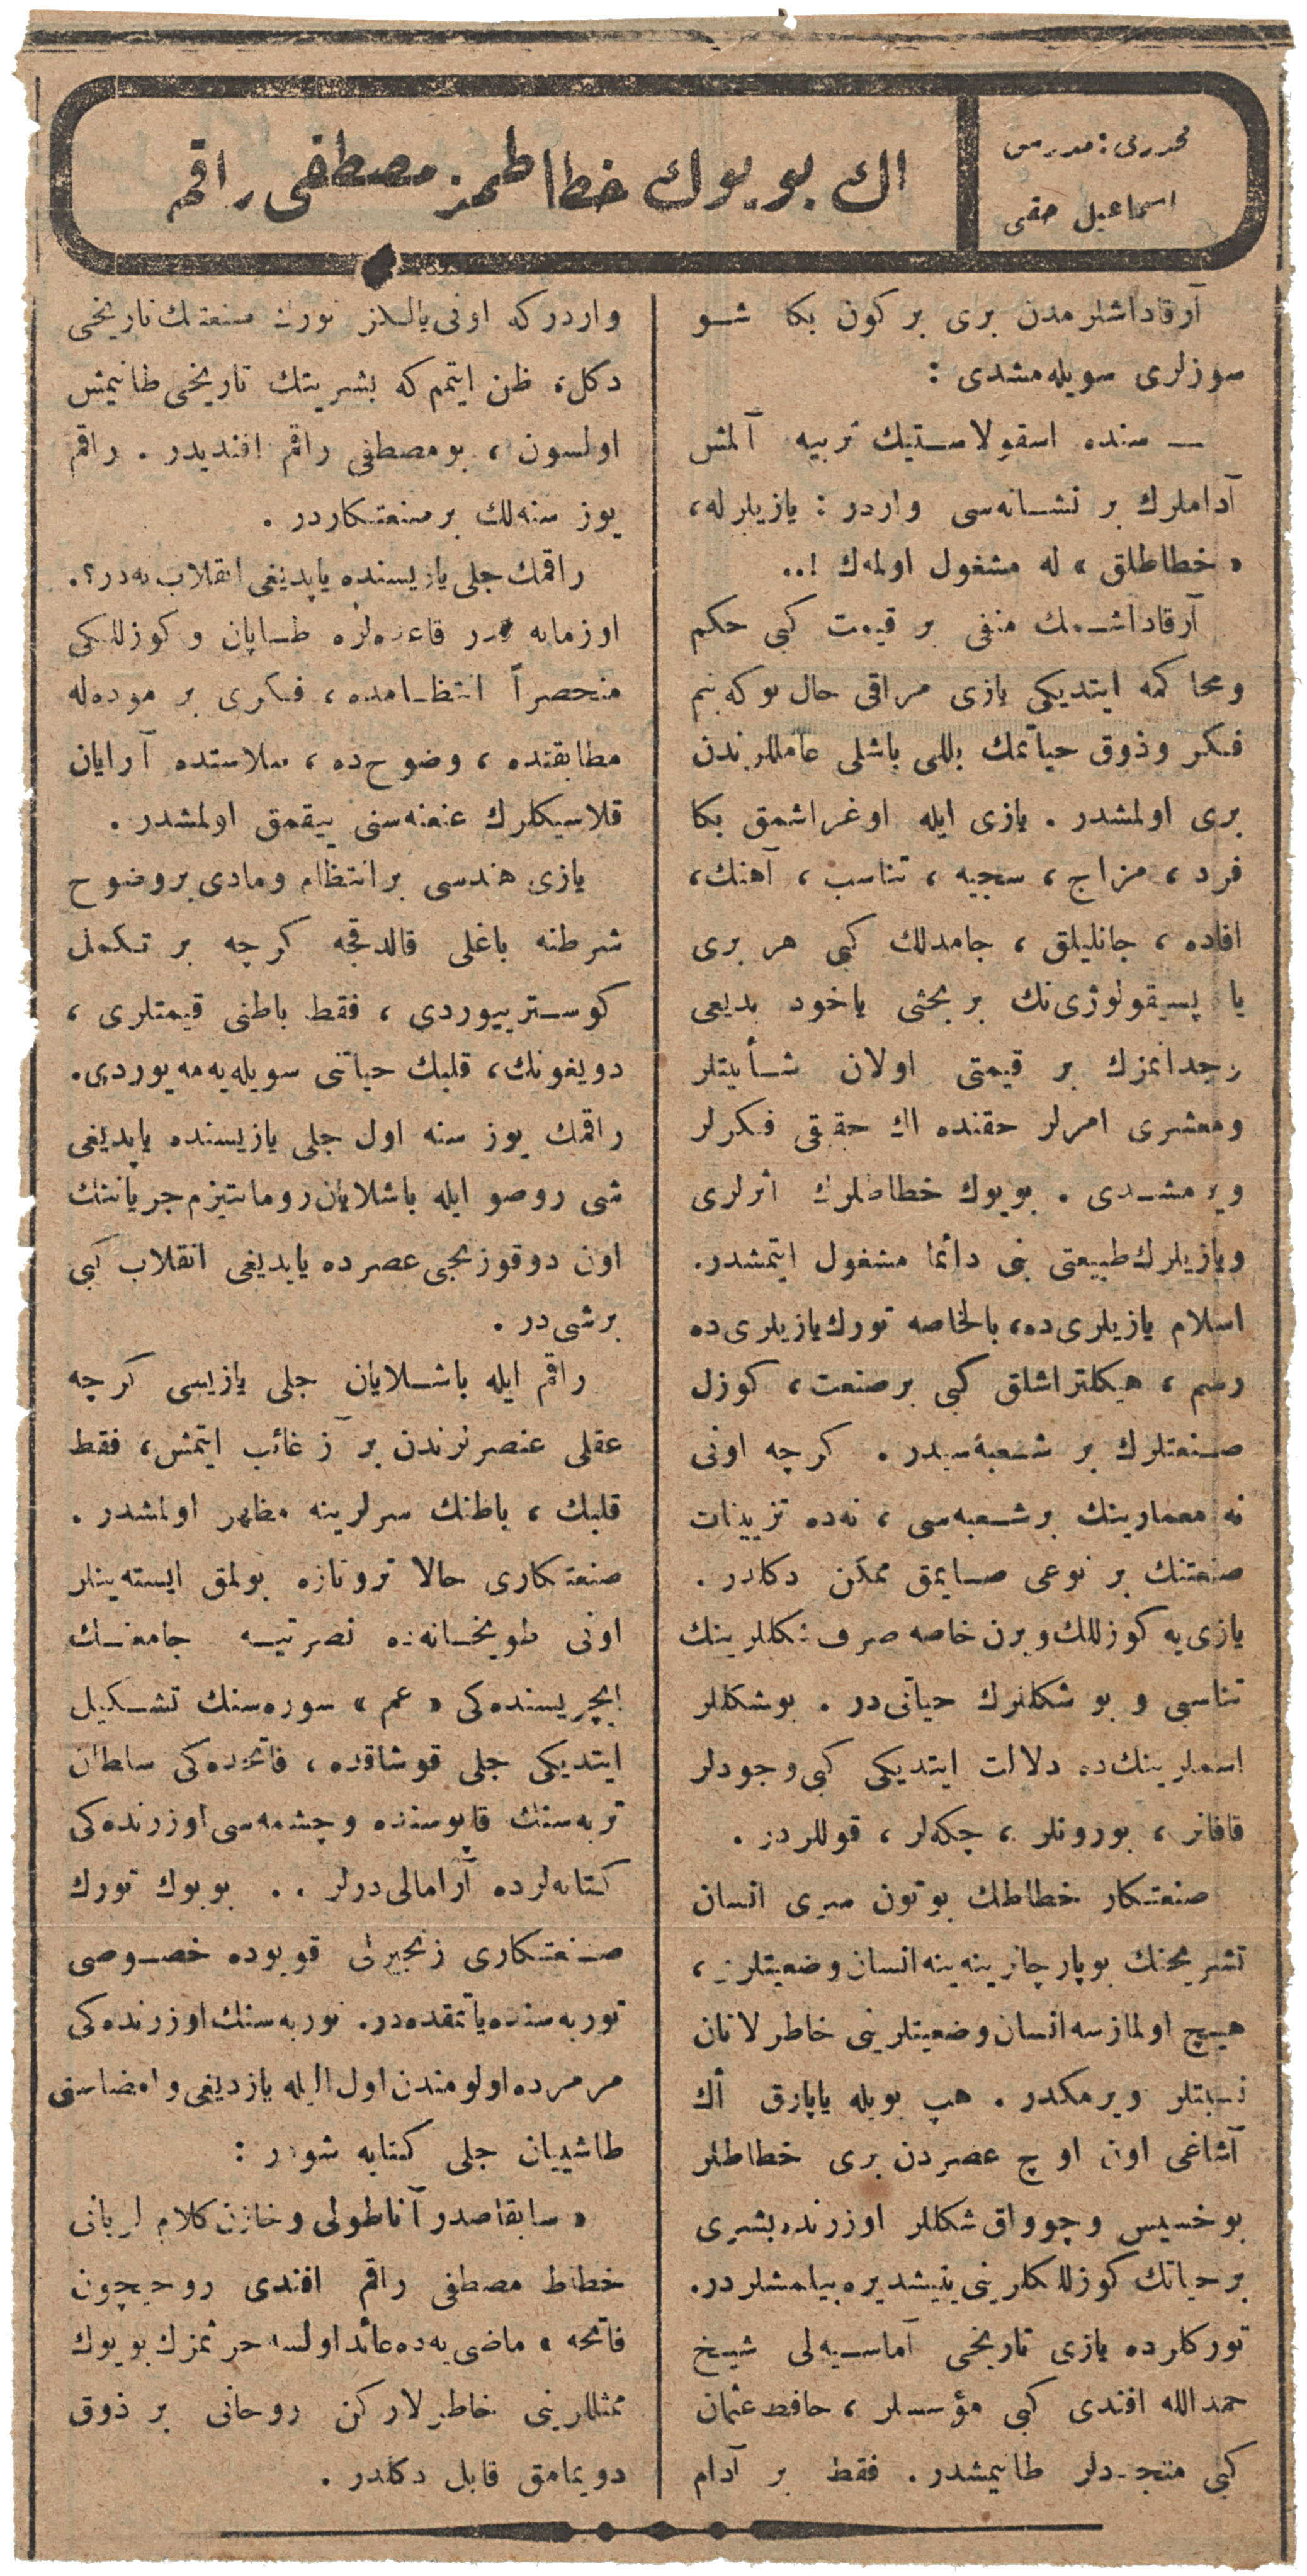 محرری : مدرس
اسماعیل حقی
اك بویوك خطاطمز مصطفی راقم
آرقاداشلرمدن بری بر كون بكا شو
سوزلری سویله مشدی :
— سنده اسقولاستیك تربیه آلمش
آداملرك بر نشانه‌سی واردر : یازیلرله،
« خطاطلق » له مشغول اولمه‌ك !..
آرقاداشمك منفی بر قیمت كبی حكم
ومحا كمه ایتدیكی یازی مراقی حال بوكه بنم
فكر وذوق حیاتمك بللی باشلی عامللرندن
بری اولمشدر . یازی ایله اوغراشمق بكا
فرد ، مزاج ، سجیه ، تناسب ، آهنك،
افاده ، جانلیلق ، جامدلك كبی هر بری
یا پسیقولوژی‌نك بر بحثی یاخود بدیعی
وجدانمزك بر قیمتی اولان شأنیتلر
ومعشری امرلر حقنده اك حقیقی فكرلر
ویرمشدی . بویوك خطاطلرك اثرلری
ویازیلرك طبیعتی بنی دائما مشغول ایتمشدر.
اسلام یازیلری‌ده، بالخاصه تورك یازیلری‌ده
رسم ، هیكلتراشلق كبی بر صنعت، كوزل
صنعتلرك بر شعبه‌سیدر . كرچه اونی
نه معمارینك بر شعبه‌سی ، نه‌ده تزیینات
صنعتنك بر نوعی صایمق ممكن دكلدر .
یازی‌یه كوزللك ویرن خاصه صرف شكللرینك
تناسبی و بو شكللرك حیاتی‌در . بوشكللر
اسملرینك‌ده دلالت ایتدیكی كبی وجودلر
قافالر ، بورونلر ، چكه‌لر ، قوللردر .
صنعتكار خطاطك بوتون سری انسان
تشریحنك بوپارچالرینه ینه انسان وضعیتلری ،
هیچ اولمازسه انسان وضعیتلرینی خاطرلاتان
نسبتلر ویرمكدر . هپ بویله یاپارق أك
آشاغی اون اوچ عصردن بری خطاطلر
بوخسیس وچوواق شكللر اوزرنده بشری
برحیاتك كوزللكلرینی ینیشدیره بیلمشلردر.
توركلرده یازی تاریخی آماسیه‌لی شیخ
حمدالله افندی كبی مؤسسلر ، حافظ عثمان
كبی متجددلر طانیمشدر. فقط بر آدام
واردركه اونی یالكز تورك صنعتك تاریخی
دكل، ظن ایتمم كه بشریتك تاریخی طانیمش
اولسون ، بومصطفی راقم افندیدر . راقم
یوز سنه‌لك بر صنعتكاردر .
راقمك جلی یازیسنده یاپدیغی انقلاب نه‌در؟.
اوزمانه قدر قاعده‌لره طاپان و كوزللكی
منحصراً انتظامده ، فكری بر موده‌له
مطابقتده ، وضوح‌ده ، سلاستده آرایان
قلاسیكلرك عنعنه‌سنی ییقمق اولمشدر .
یازی هندسی بر انتظام ومادی بر وضوح
شرطنه باغلی قالدقجه كرچه بر تكمل
كوستریبوردی ، فقط باطنی قیمتلری ،
دویغونك، قلبك حیاتنی سویله‌یه‌مه‌یوردی.
راقمك یوز سنه اول جلی یازیسنده یاپدیغی
شی روصو ایله باشلایان رومانتیزم جریاننك
اون دوقوزنجی عصرده یاپدیغی انقلاب كبی
برشی‌در .
راقم ایله باشلایان جلی یازیسی كرچه
عقلی عنصرلرندن بر آز غائب ایتمش، فقط
قلبك ، باطنك سرلرینه مظهر اولمشدر .
صنعتكاری حالا تروتازه بولمق ایسته‌ینلر
اونی طوپخانه‌ده نصرتیه جامعنك
ایچریسنده‌كی « عم » سوره‌سنك تشكیل
ایتدیكی جلی قوشاقده ، فاتحده‌كی سلطان
تربه‌سنك قاپوسنده وچشمه‌سی اوزرنده‌كی
كتابه‌لرده آرامالی‌درلر .. بویوك تورك
صنعتكاری زنجیرلی قویوده خصوصی
توربه‌سنده یاتمقده‌در. توربه‌سنك اوزرنده‌كی
مرمرده اولومندن اول الیله یازدیغی وامضاسنی
طاشییان جلی كتابه شودر :
« سابقا صدر آناطولی وخازن كلام ربانی
خطاط مصطفی راقم افندی روحیچون
فاتحه » ماضی‌یه‌ده عائد اولسه حرثمزك بویوك
ممثللرینی خاطرلاركن روحانی بر ذوق
دویمامق قابل دكلدر .